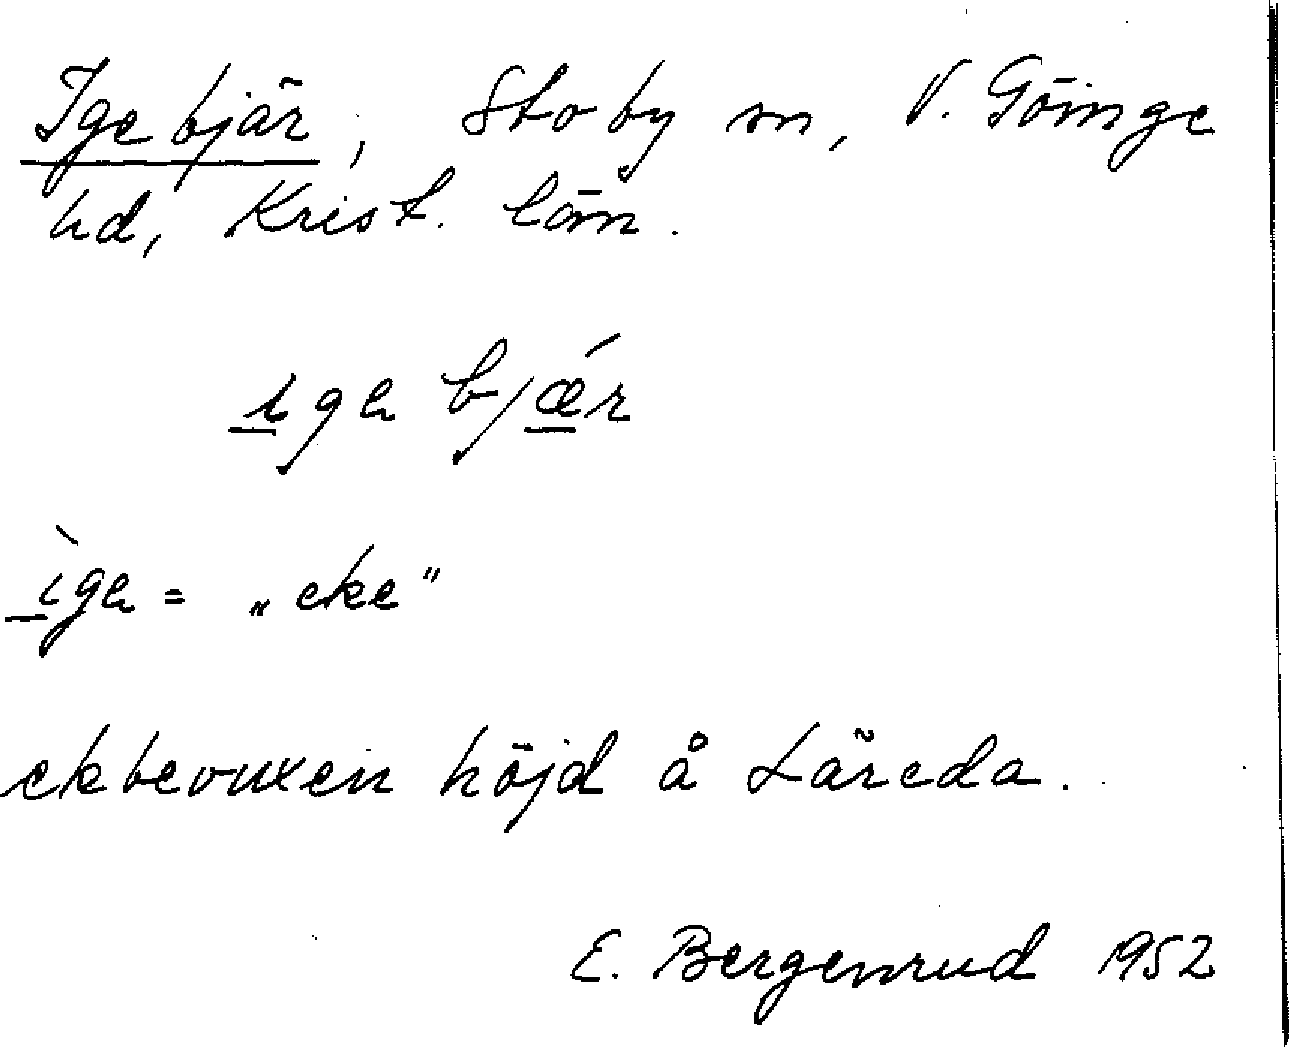 Igebjär, Stoby sn, V. Göinge
hd, Krist. län.
i̲gɘ bjǽ̲r
ì̲gɘ = „eke”
ekbevuxen höjd å Läreda.
E. Bergenrud 1952